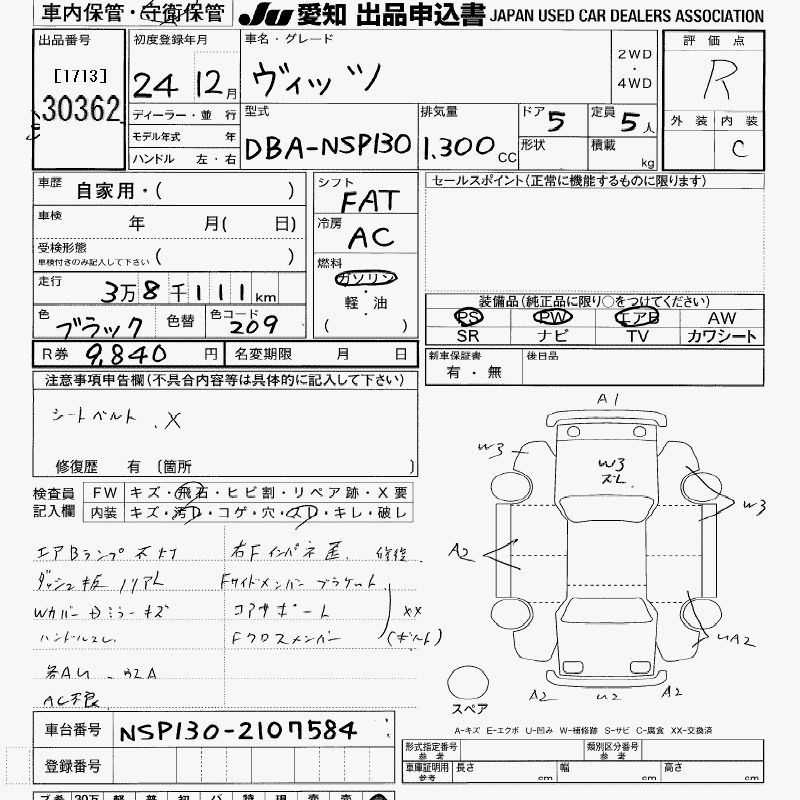 車内保管・守衛保管 JU 愛知 出品申込書 JAPAN USED CAR DEALERS ASSOCIATION
出品番号
[1713]
30362
初度登録年月
24 12月
車名・グレード
ヴィッツ
2WD
・
4WD
評価点
R
外装 内装
C
ディーラー・並行
モデル年式 年
ハンドル 左・右
型式
DBA-NSP130
排気量
1.300 CC
ドア 5
形状
定員 5人
積載 kg
車歴 自家用・( )
車検 年 月( 日)
受検形態
車検付きのみ記入して下さい ( )
走行
3万8千111km
色 ブラック 色替 色コード 209
シフト
FAT
冷房
AC
燃料
ガソリン
・
軽・油
( ・ )
セールスポイント(正常に機能するものに限ります)
装備品(純正品に限り○をつけてください)
PS PW エアB AW
SR ナビ TV カワシート
R券 9,840 円 名変期限 月 日
新車保証書
有・無
後日品
注意事項申告欄(不具合内容等は具体的に記入して下さい)
シートベルト .X
修復歴 有 〔箇所 〕
検査員
記入欄
FW キズ・飛石・ヒビ割・リペア跡・X要
内装 キズ・汚レ・コゲ・穴・スレ・キレ・破レ
エアBランプ不灯
右Fインパネ差 修復
Fサイドメンバーブラケット
コアサポート
Fクロスメンバー
XX
(ボルト)
ハンドルスレ
AC不良
A1
W3
W3
スレ
W3
A2
UA2
A2
U2
A2
スペア
A-キズ E-エクボ U-凹み W-補修跡 S-サビ C-腐食 XX-交換済
車台番号 NSP130-2107584
登録番号
形式指定番号
参考
類別区分番号
参考
車庫証明用
参考
長さ cm 幅 cm 高さ cm